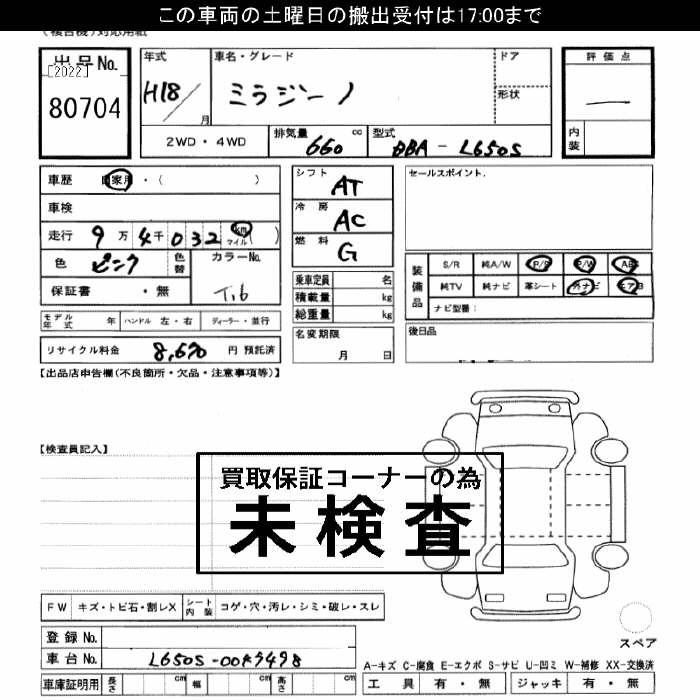 この車両の土曜日の搬出受付は17:00まで
出品No.
[2022]
80704
年式
H18/
月
車名・グレード
ミラジーノ
ドア
形状
評価点
内装
2WD・4WD
排気量
660
cc
型式
DBA - L650S
車歴 自家用・( )
車検
走行 9万4千032 km マイル ( )
色 ピンク
色替
カラーNo.
T16
保証書 ・無
モデル年式 年 ハンドル 左・右 ディーラー・並行
リサイクル料金 円 預託済
シフト AT
冷房 AC
燃料 G
乗車定員 名
積載量 kg
総重量 kg
名変期限
月 日
セールスポイント.
装備品
S/R 純A/W P/S P/W ABS
純TV 純ナビ 革シート 外ナビ エアB
ナビ型番:
後日品
【出品店申告欄(不良箇所・欠品・注意事項等)】
【検査員記入】
買取保証コーナーの為
未検査
FW キズ・トビ石・割レX シート内装 コゲ・穴・汚レ・シミ・破レ・スレ
スペア
登録No.
車台No.
車庫証明用 長さ cm 幅 cm 高さ cm
A-キズ C-腐食 E-エクボ S-サビ U-凹ミ W-補修 XX-交換済
工具 有・無 ジャッキ 有・無